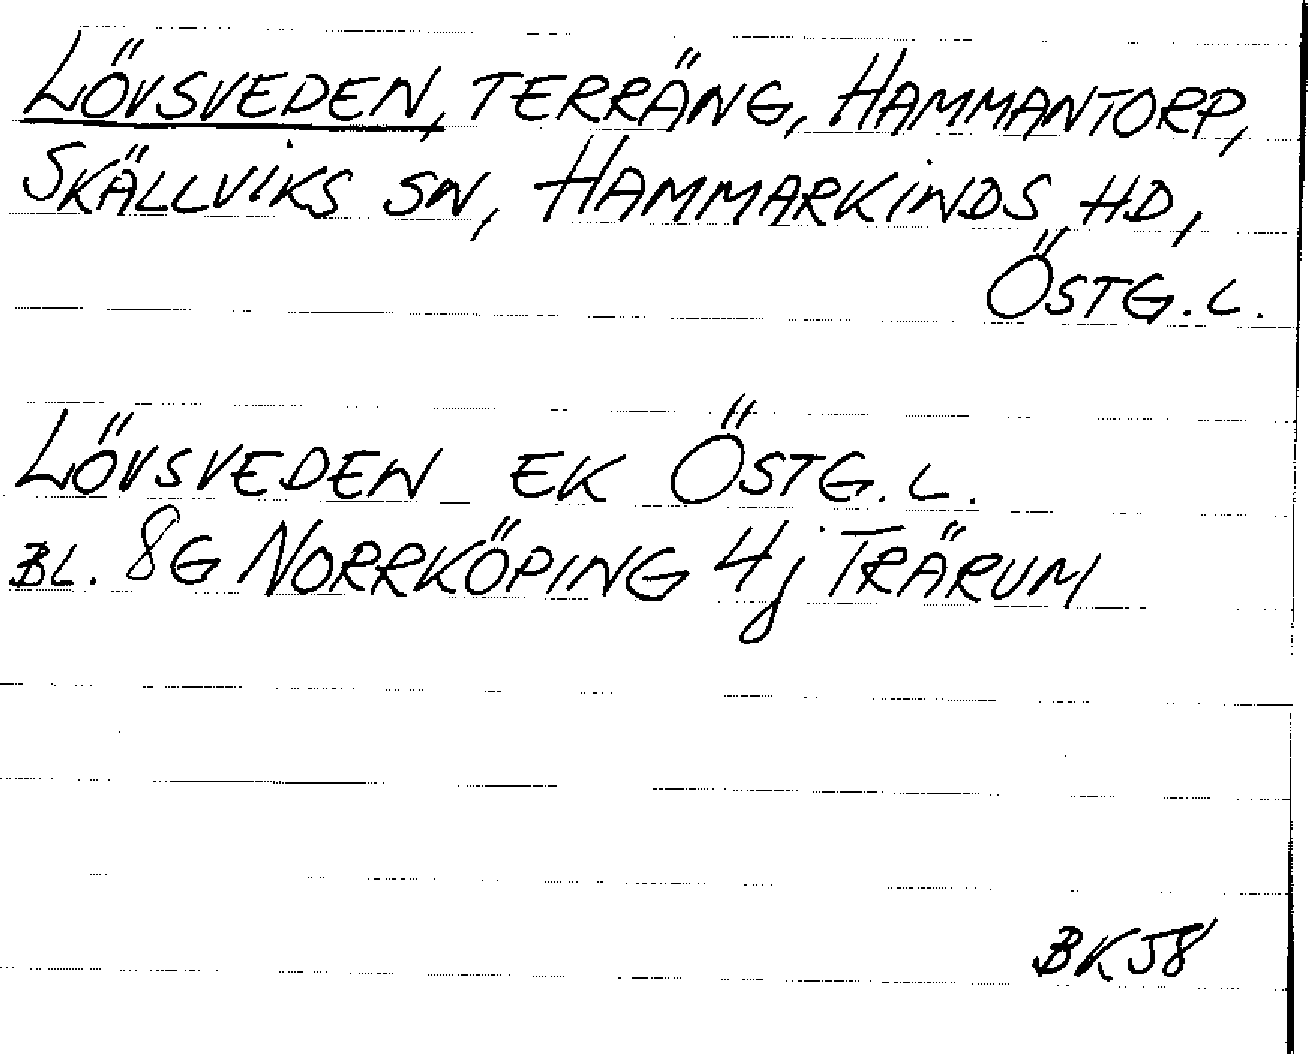 LÖVSVEDEN, TERRÄNG, HAMMANTORP,
SKÄLLVIKS SN, HAMMARKINDS HD,
ÖSTG.L.
LÖVSVEDEN EK ÖSTG.L.
BL. 8G NORRKÖPING 4j TRÄRUM
BK58